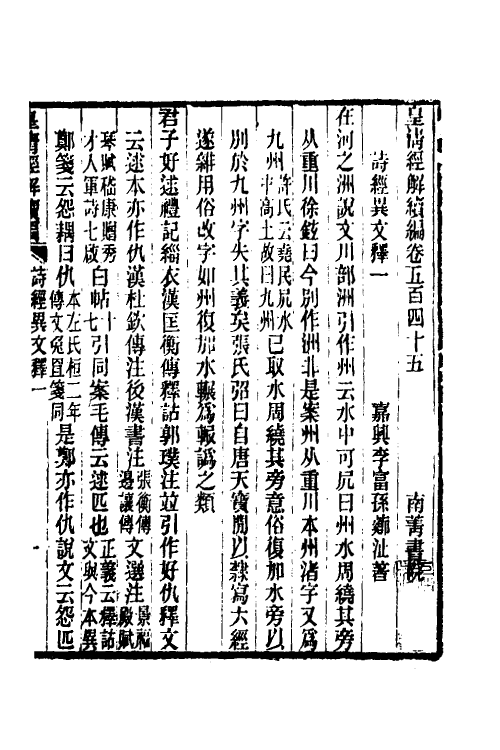 皇清經解續編卷五百四十五 南菁書院
詩經異文釋一 嘉興李富孫薌沚著
在河之洲說文川部洲引作州云水中可凥曰州水周繞其旁
从重川徐鉉曰今別作洲非是案州从重川本州渚字又爲
九州許氏云堯民凥水中高土故曰九州已取水周繞其旁意俗復加水旁以
別於九州字失其義矣張氏弨曰自唐天寶閒以隸寫六經
遂雜用俗改字如州復加水輾爲輾譌之類
君子好逑禮記緇衣漢匡衡傳釋詁郭璞注竝引作好仇釋文
云逑本亦作仇漢杜欽傳注後漢書注張衡傳邊讓傳文選注景福殿賦
琴賦嵇康贈秀才入軍詩七啟白帖十七引同案毛傳云逑匹也正義云釋詁文與今本異
鄭箋云怨耦曰仇本左氏桓二年傳文兔罝箋同是鄭亦作仇說文云怨匹
皇清經解續編 詩經異文釋一 一